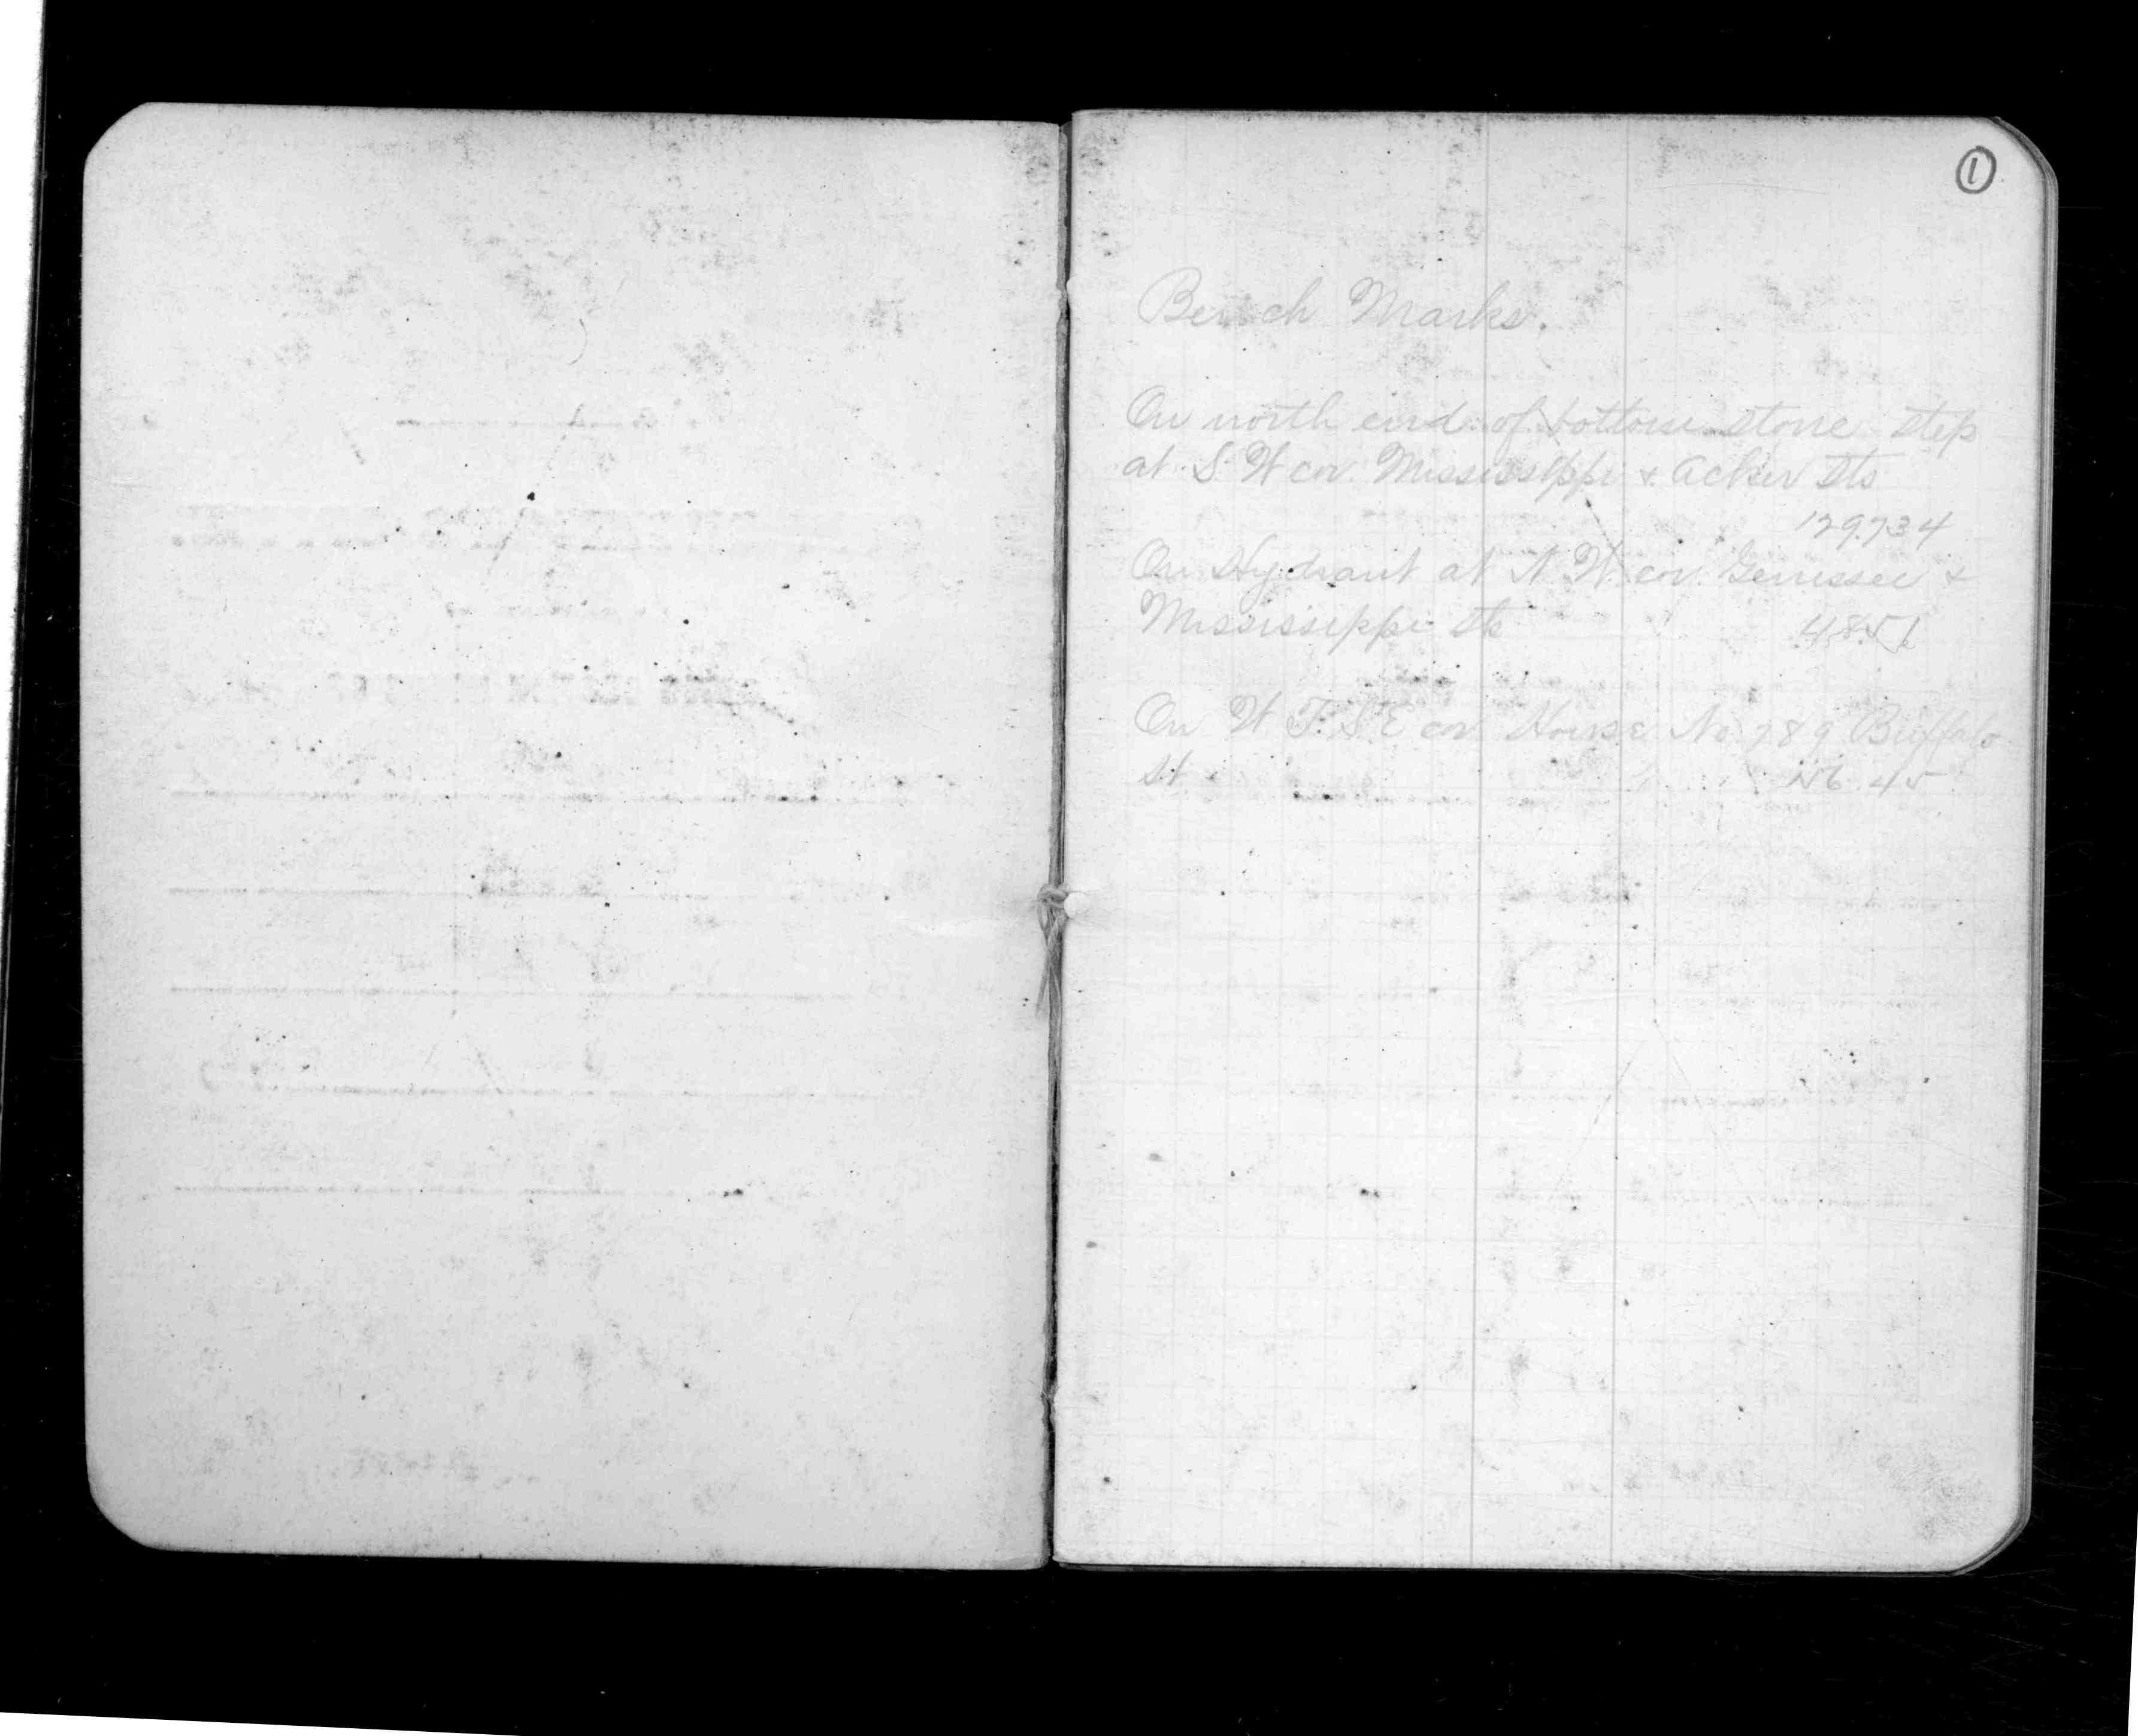 1
Bench Marks.
On north end of bottom stone step
at S W cor. Mississippi & Acker Sts
129.734
On Hydrant at N W cor. Genessee &
Mississippi Sts
On W T. S E cor House No 789 Buffalo
St 56.45